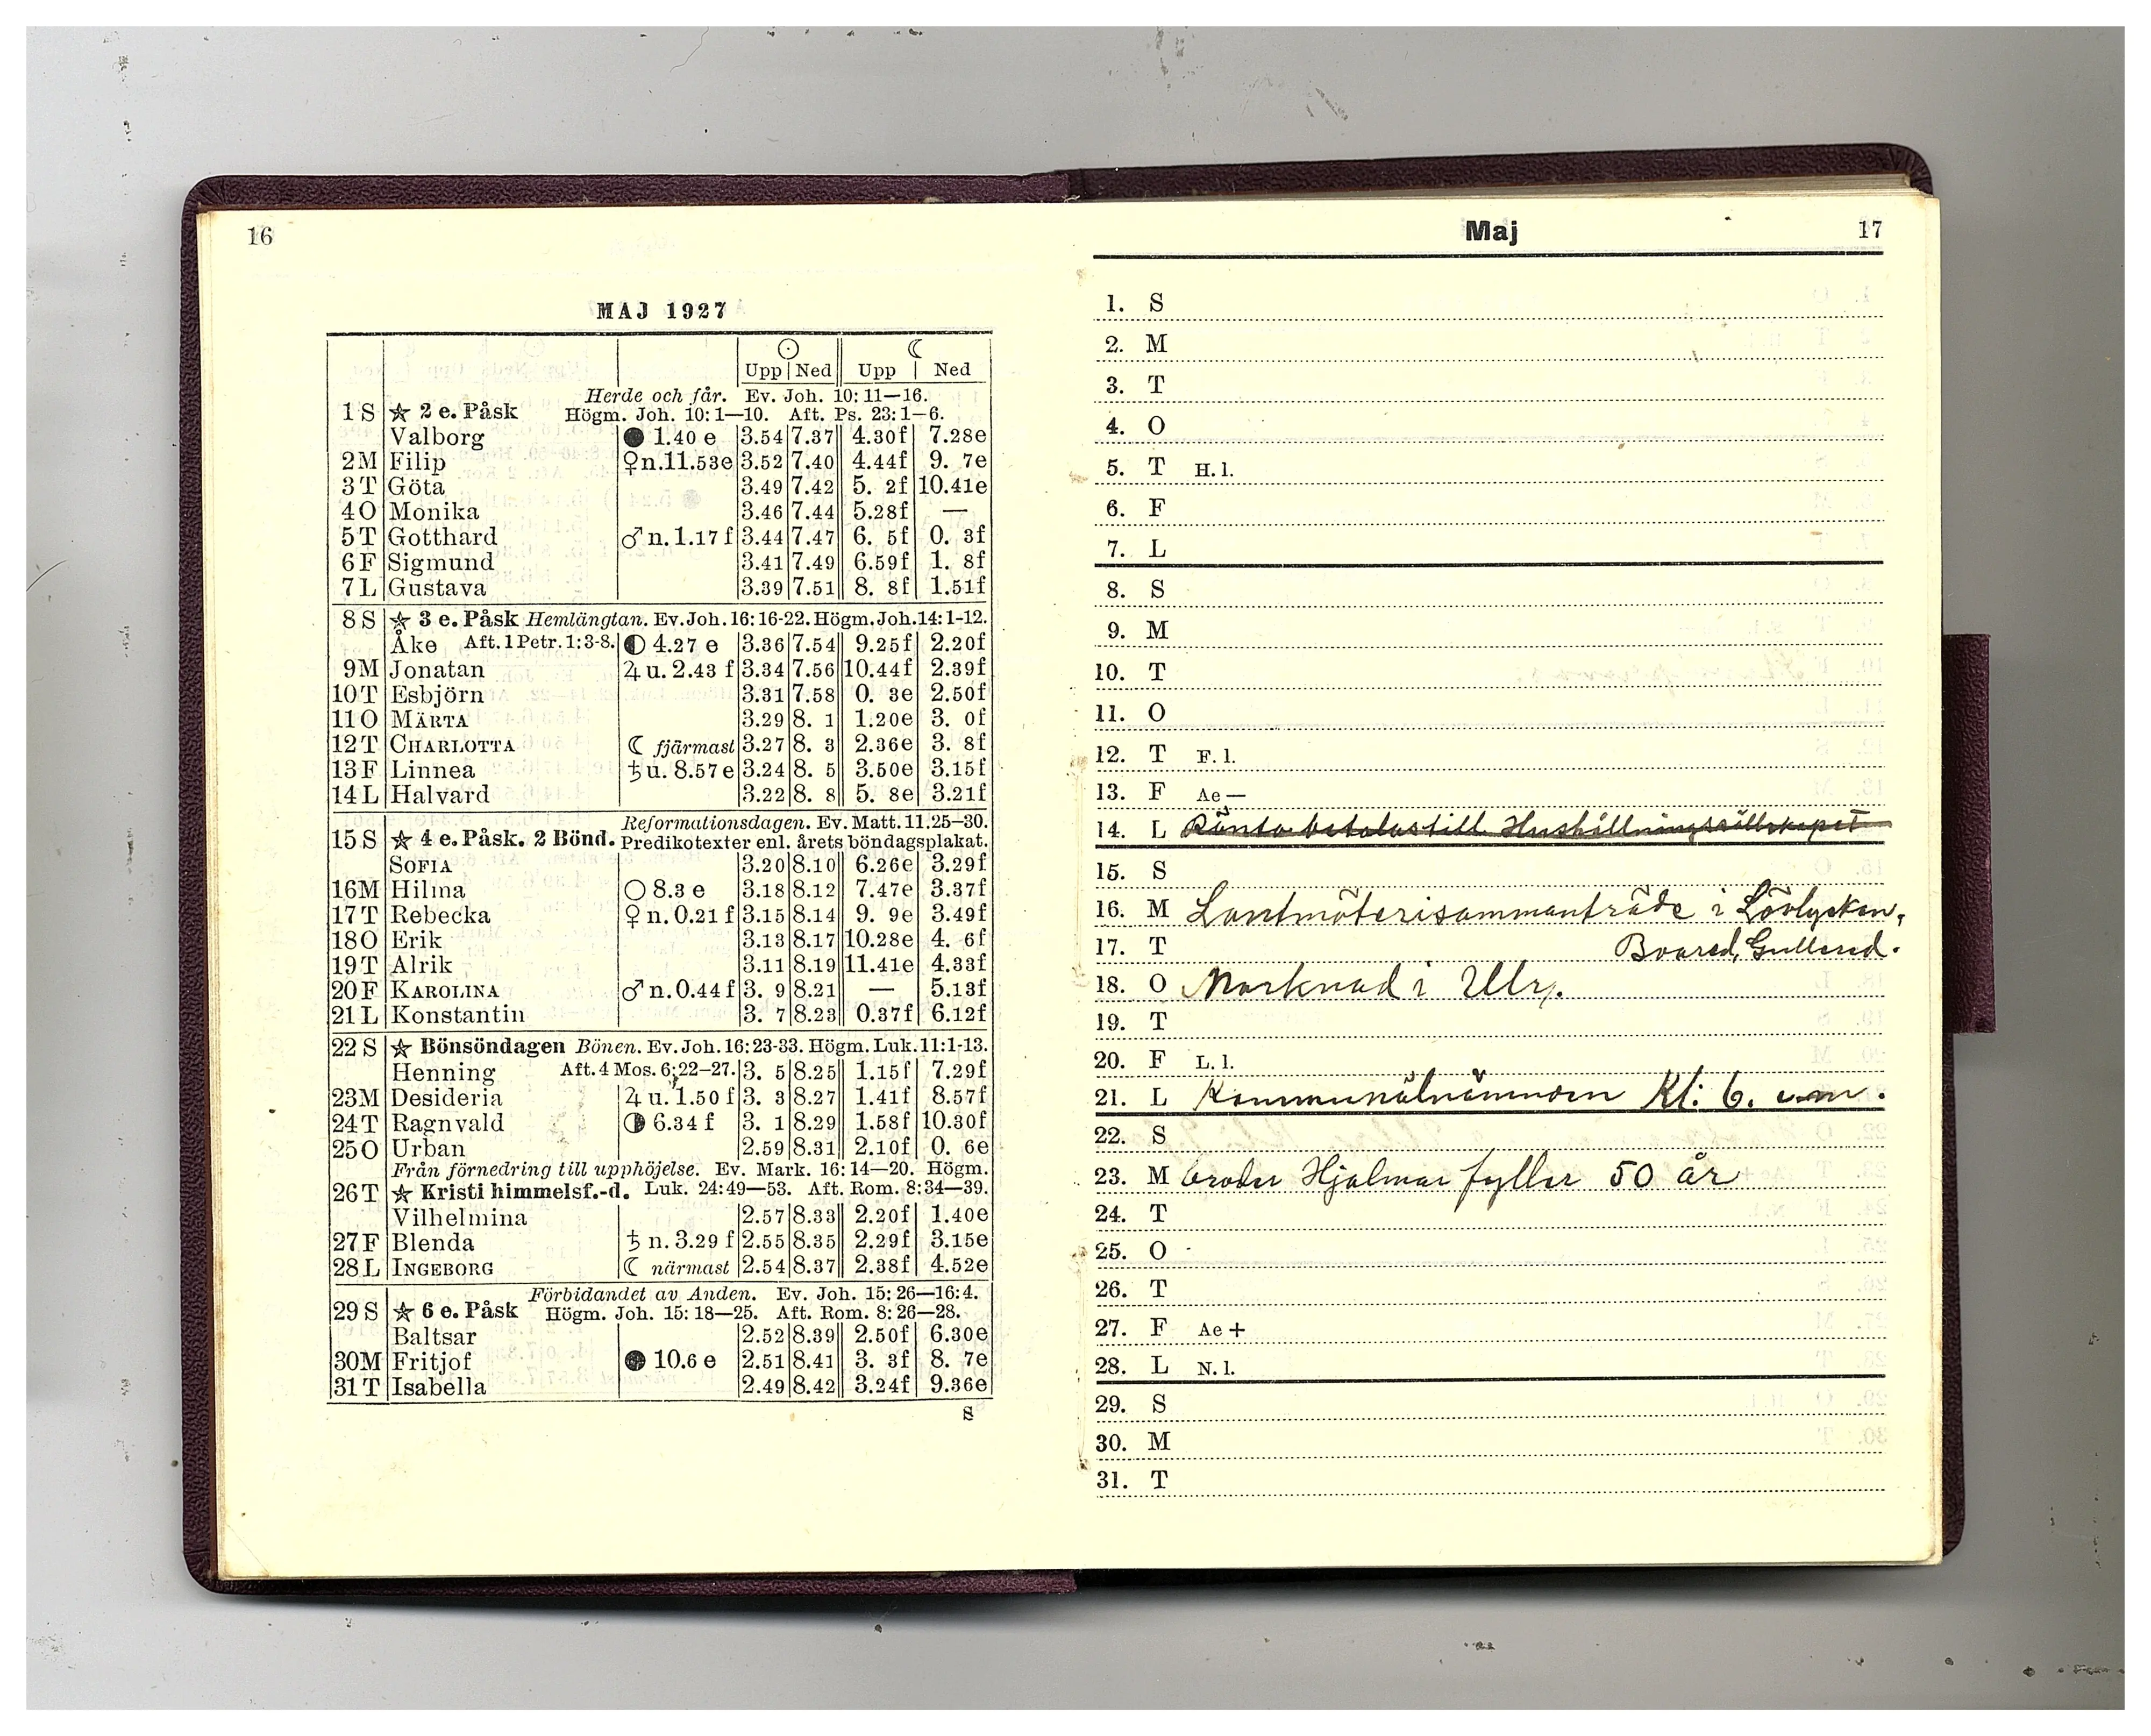 16
MAJ 1927
☉ ☾
Upp Ned Upp Ned
Herde och får. Ev. Joh. 10: 11—16.
1 S ★ 2 e. Påsk Högm. Joh. 10: 1—10. Aft. Ps. 23: 1—6.
Valborg ● 1.40 e 3.54 7.37 4.30f 7.28e
2 M Filip ♀ n. 11.53e 3.52 7.40 4.44f 9. 7e
3 T Göta 3.49 7.42 5. 2f 10.41e
4 O Monika 3.46 7.44 5.28f —
5 T Gotthard ♂ n. 1.17 f 3.44 7.47 6. 5f 0. 3f
6 F Sigmund 3.41 7.49 6.59f 1. 8f
7 L Gustava 3.39 7.51 8. 8f 1.51f
8 S ★ 3 e. Påsk Hemlängtan. Ev. Joh. 16: 16-22. Högm. Joh. 14: 1-12.
Åke Aft. 1 Petr. 1: 3-8. ◐ 4.27 e 3.36 7.54 9.25f 2.20f
9 M Jonatan ♃ u. 2.43 f 3.34 7.56 10.44f 2.39f
10 T Esbjörn 3.31 7.58 0. 3e 2.50f
11 O MÄRTA 3.29 8. 1 1.20e 3. 0f
12 T CHARLOTTA ☾ fjärmast 3.27 8. 3 2.36e 3. 8f
13 F Linnea ♄ u. 8.57 e 3.24 8. 5 3.50e 3.15f
14 L Halvard 3.22 8. 8 5. 8e 3.21f
Reformationsdagen. Ev. Matt. 11.25—30.
15 S ★ 4 e. Påsk. 2 Bönd. Predikotexter enl. årets böndagsplakat.
SOFIA 3.20 8.10 6.26e 3.29f
16 M Hilma ○ 8.3 e 3.18 8.12 7.47e 3.37f
17 T Rebecka ♀ n. 0.21 f 3.15 8.14 9. 9e 3.49f
18 O Erik 3.13 8.17 10.28e 4. 6f
19 T Alrik 3.11 8.19 11.41e 4.33f
20 F KAROLINA ♂ n. 0.44 f 3. 9 8.21 — 5.13f
21 L Konstantin 3. 7 8.23 0.37f 6.12f
22 S ★ Bönsöndagen Bönen. Ev. Joh. 16: 23-33. Högm. Luk. 11: 1-13.
Henning Aft. 4 Mos. 6: 22—27. 3. 5 8.25 1.15f 7.29f
23 M Desideria ♃ u. 1.50 f 3. 3 8.27 1.41f 8.57f
24 T Ragnvald ◑ 6.34 f 3. 1 8.29 1.58f 10.30f
25 O Urban 2.59 8.31 2.10f 0. 6e
Från förnedring till upphöjelse. Ev. Mark. 16: 14—20. Högm.
26 T ★ Kristi himmelsf.-d. Luk. 24: 49—53. Aft. Rom. 8: 34—39.
Vilhelmina 2.57 8.33 2.20f 1.40e
27 F Blenda ♄ n. 3.29 f 2.55 8.35 2.29f 3.15e
28 L INGEBORG ☾ närmast 2.54 8.37 2.38f 4.52e
Förbidandet av Anden. Ev. Joh. 15: 26—16: 4.
29 S ★ 6 e. Påsk Högm. Joh. 15: 18—25. Aft. Rom. 8: 26—28.
Baltsar 2.52 8.39 2.50f 6.30e
30 M Fritjof ● 10.6 e 2.51 8.41 3. 3f 8. 7e
31 T Isabella 2.49 8.42 3.24f 9.36e
S
Maj 17
1. S
2. M
3. T
4. O
5. T H. l.
6. F
7. L
8. S
9. M
10. T
11. O
12. T F. l.
13. F Ae —
14. L Ränta betalas till Hushållningssällskapet
15. S
16. M Lantmäterisammanträde i Lövlycken,
17. T Boared, Gullered.
18. O Marknad i Ulr.
19. T
20. F L. l.
21. L Kommunalnämnden Kl: 6. e.m.
22. S
23. M broder Hjalmar fyller 50 år
24. T
25. O
26. T
27. F Ae +
28. L N. l.
29. S
30. M
31. T